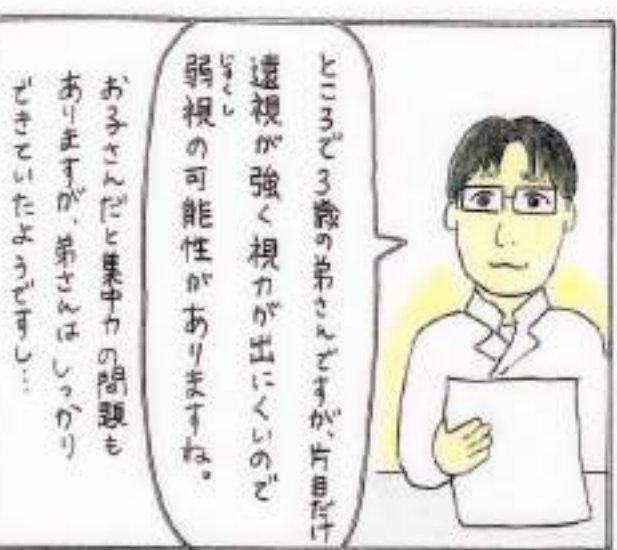 ところで3歳の弟さんですが、片目だけ
遠視が強く視力が出にくいので
弱視の可能性がありますね。
じゃくし
お子さんだと集中力の問題も
ありますが、弟さんはしっかり
できていたようですし…